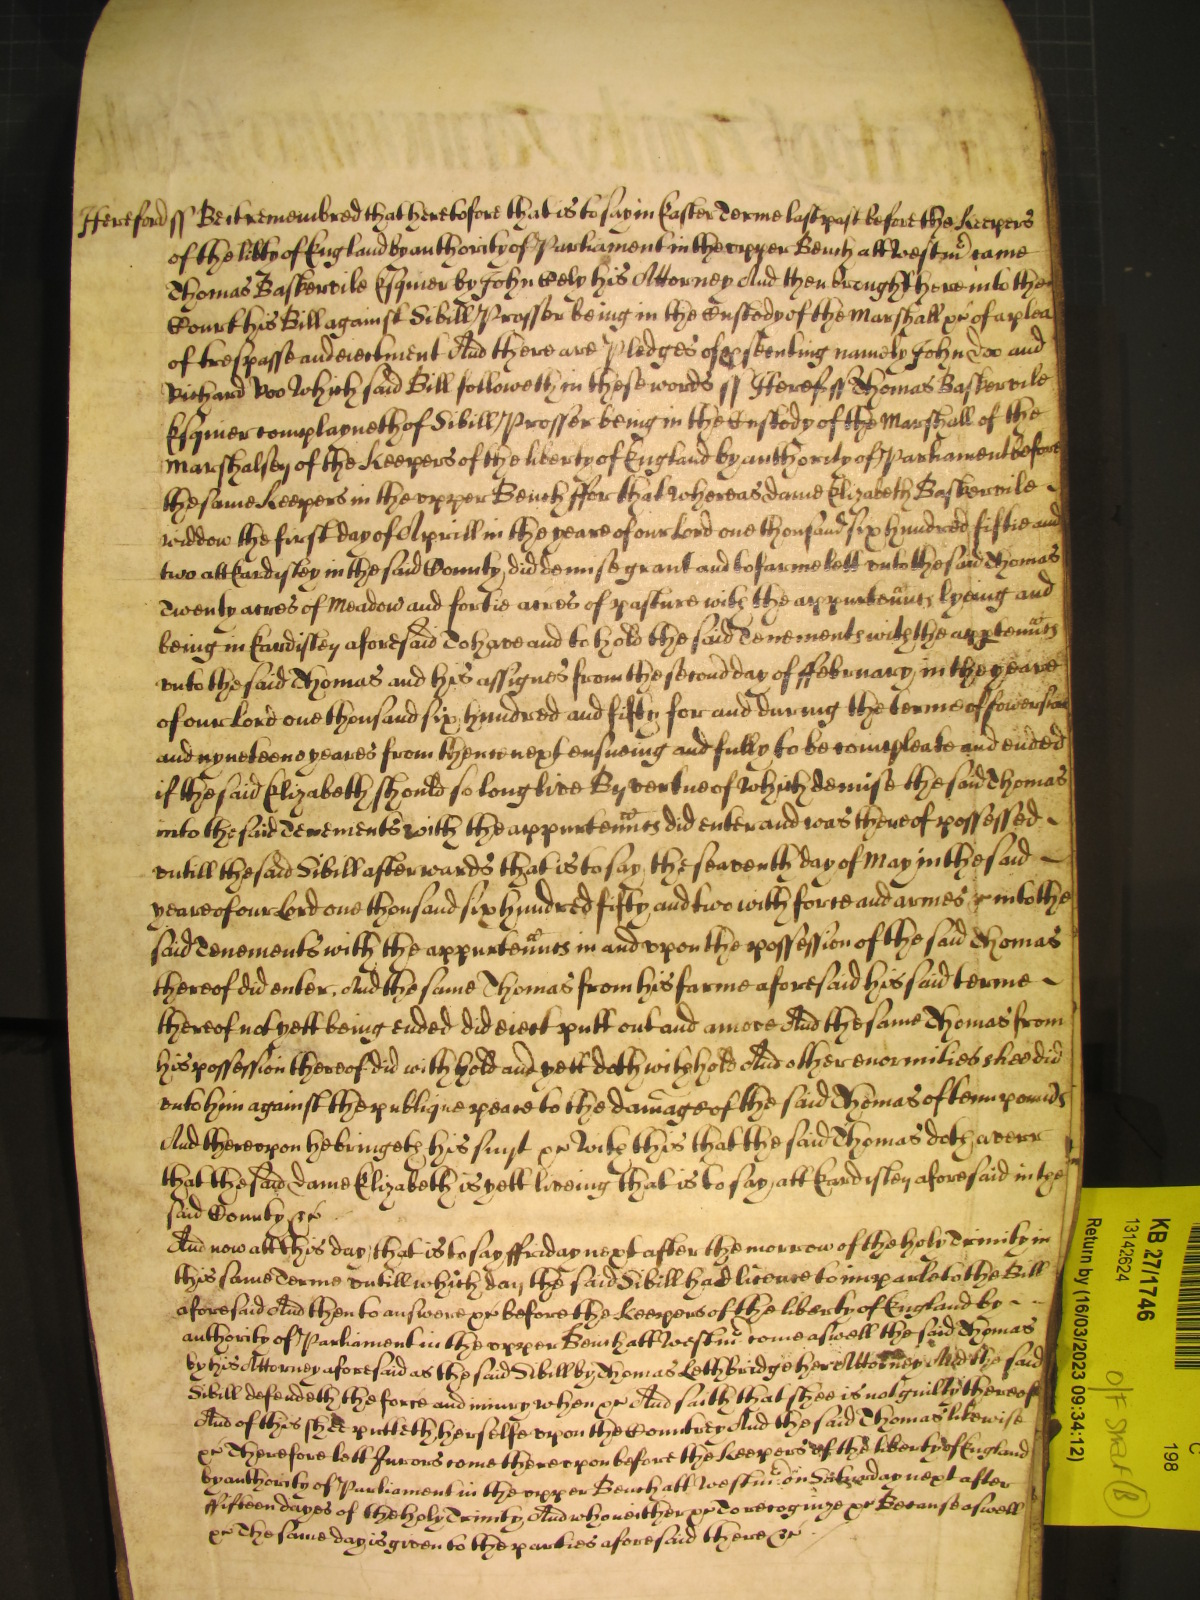 Hereford ss Be it remembred that heretofore that is to say in Easter Terme last past before the Keepers
of the libty of England by authority of Parliament in the upper Bench att Westm came
Thomas Baskervile Esquier by John Eely his Attorney And then brought here into the
Court his Bill against Sibill Prosser being in the Custody of the Marshall &c of a plea
of trespasse and eiectment And there are Pledges of psecuting namely John Doo and
Richard Roo Which said Bill followeth in these words ss Heref ss Thomas Baskervile
Esquier complayneth of Sibill Prosser being in the Custody of the Marshall of the
Marshalsey of the Keepers of the liberty of England by authority of Parliament before
the same Keepers in the upper Bench ffor that Whereas dame Elizabeth Baskervile
widdow the first day of Aprill in the yeare of our Lord one thousand six hundred fiftie and
two att Eardisley in the said County did demise grant and to farme lett unto the said Thomas
Twenty acres of Meadow and fortie acres of pasture with the appurtenncs lyeing and
being in Eardisley aforesaid To have and to hold the said Tenements with the apptenncs
unto the said Thomas and his assignes from the second day of ffebruary in the yeare
of our Lord one thousand six hundred and fifty for and during the terme of fowerscore
and nyneteene yeares from thence next ensueing and fully to be compleate and ended
if the said Elizabeth should so long live By vertue of Which demise the said Thomas
into the said Tenements with the appurtenncs did enter and was thereof possessed
untill the said Sibill afterwards that is to say the seaventh day of May in the said
yeare of our Lord one thousand six hundred fifty and two with force and armes &c into the
said Tenements with the appurtenncs in and upon the possession of the said Thomas
thereof did enter. And the same Thomas from his farme aforesaid his said terme
thereof not yett being ended did eiect putt out and amove And the same Thomas from
his possession thereof did with hold and yett doth withhold And other enormities shee did
unto him against the publique peace to the damage of the said Thomas of tenn pounds
And thereupon he bringeth his suyt &c With this that the said Thomas doth averr
that the said dame Elizabeth is yett liveing that is to say att Eardisley aforesaid in the
said County &c
And now att this day that is to say ffriday next after the morrow of the holy Trinity in
this same Terme untill which day the said Sibill had licence to imparle to the Bill
aforesaid And then to answere &c before the Keepers of the liberty of England by
authority of Parliament in the upper Bench att Westm come aswell the said Thomas
by his Attorney aforesaid as the said Sibill by Thomas Lethbridge her Attorney And the said
Sibill defendeth the force and iniury when &c And saith that shee is not guilty thereof
And of this shee putteth herselfe upon the Countrey And the said Thomas likewise
&c Therefore lett Jurors come thereupon before the Keepers of the liberty of England
by authority of Parliament in the upper Bench att Westm on Saturday next after
ffifteen dayes of the holy Trinity And who neither &c To recognize &c Because aswell
&c The same day is given to the parties aforesaid there &c
KB 27/1746
13142624
Return by (16/03/2023 09:34:12)
198